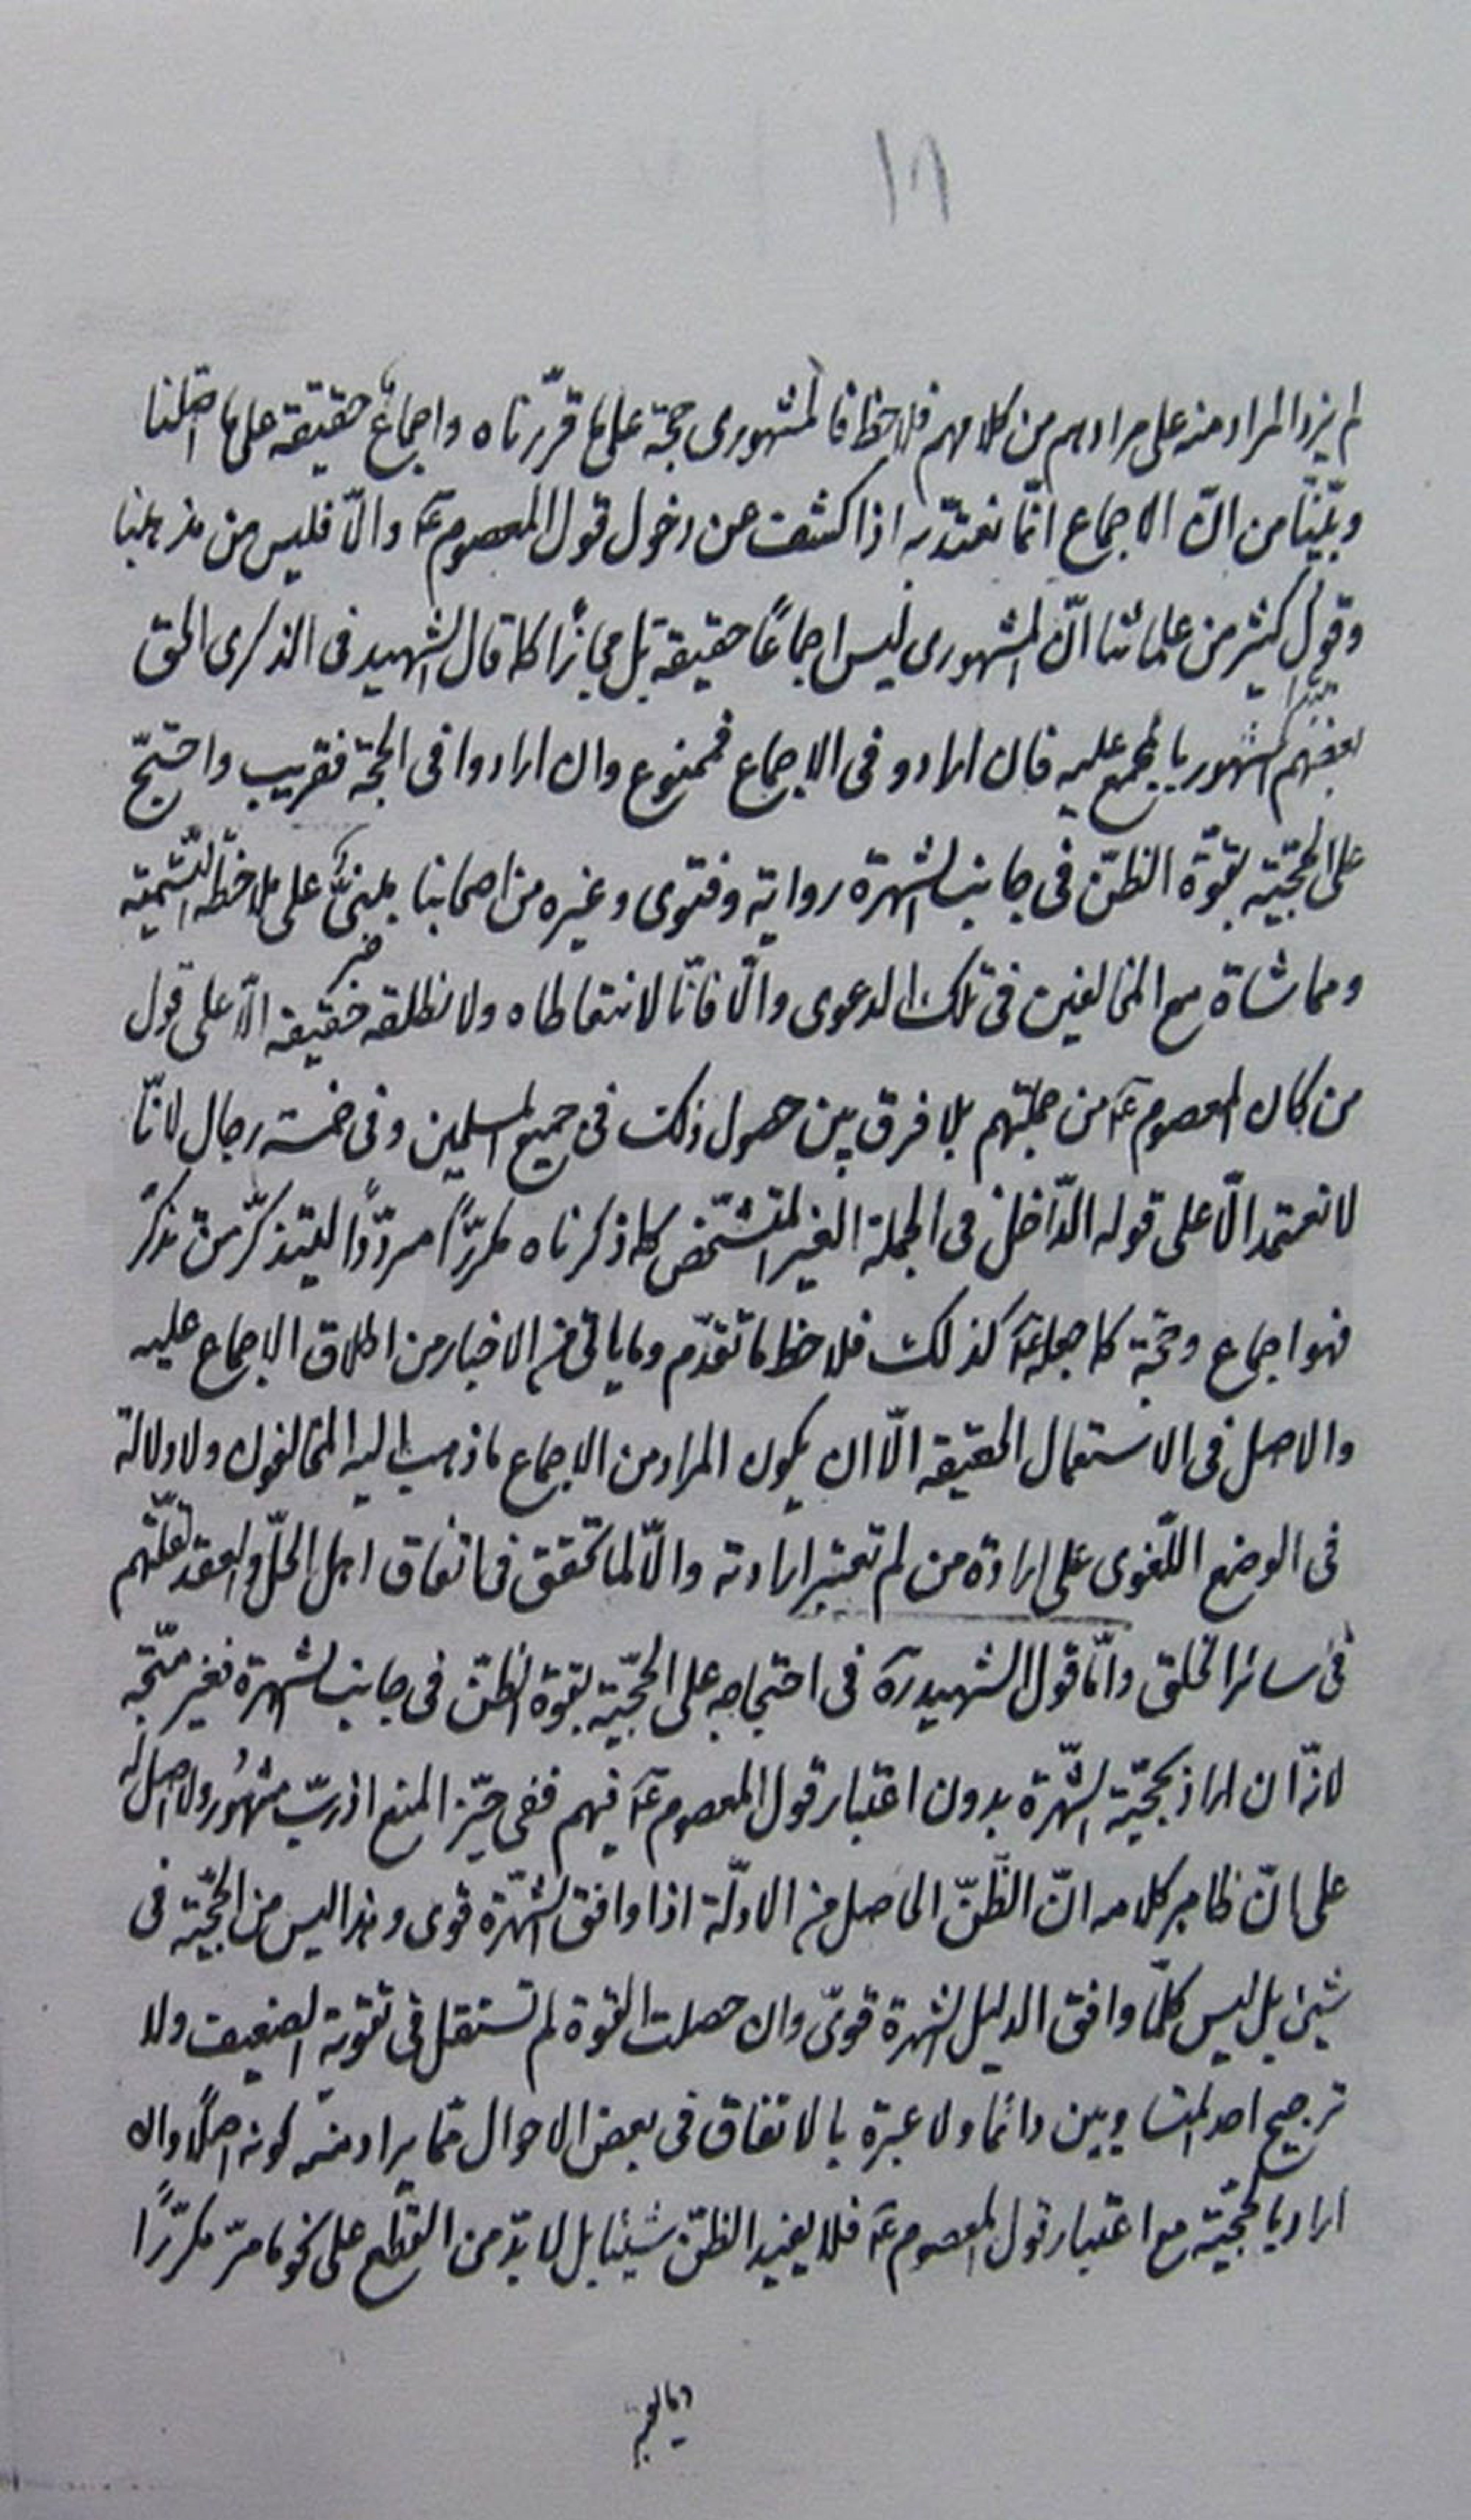 ١٦
لم يزد المراد منه على مرادهم من كلامهم فلاحظ فالمشهورى حجة على ما قرّرناه واجماعٌ حقيقة على ما اصّلنا
وبيّنّا من انّ الاجماع انّما نعتدّ به اذا كشف عن دخول قول المعصوم عۤ والّا فليس من مذهبنا
وقول كثير من علمائنا انّ المشهورى ليس اجماعًا حقيقة بل مجازًا كما قال الشهيد فى الذكرى الحق
بعضهم المشهور بالمجمع عليه فان ارادو فى الاجماع فممنوع وان ارادوا فى الحجة فقريب واحتجّ
على الحجّيّة بقوّة الظنّ فى جانب الشهرة رواية وفتوى وغيره من اصحابنا مبنىٌّ على ملاحظة التسمية
ومماشاة مع المخالفين فى تلك الدعوى والّا فانّا لا نتعاطاه ولا نطلقه حقيقة الّا على قول
من كان المعصوم عۤ من جملتهم بلا فرق بين حصول ذلك فى جميع المسلمين وفى خمسة رجال لانّا
لا نعتمد الّا على قوله الدّاخل فى الجملة الغير المتشخّص كما ذكرناه مكرّرًا مردّدًا ليتذكّر من تذكّر
فهو اجماع وحجّة كما جعله عۤ كذلك فلاحظ ما تقدّم وما ياتى من الاخبار من اطلاق الاجماع عليه
والاصل فى الاستعمال الحقيقة الّا ان يكون المراد من الاجماع ما ذهب اليه المخالفون ولا دلالة
فى الوضع اللّغوى على ارادة من لم تعتبر ارادته والّا لما تحقق فى اتفاق اهل الحلّ والعقد لقلّتهم
فى سائر الخلق وامّا قول الشهيد رهۤ فى احتجاجه على الحجّيّة بقوة الظنّ فى جانب الشهرة فغير متّجه
لانّه ان اراد بحجّيّة الشّهرة بدون اعتبار قول المعصوم عۤ فيهم ففى حيّز المنع اذ ربّ مشهور ولا اصل له
على انّ ظاهر كلامه انّ الظّنّ الحاصل من الادلّة اذا وافق الشّهرة قوى وهذا ليس من الحجّيّة فى
شيئ بل ليس كلّما وافق الدليل الشهرة قوىّ وان حصلت القوة لم تستقل فى تقوية الضعيف ولا
ترجيح احد المتساويين دائما ولا عبرة بالاتفاق فى بعض الاحوال ممّا يراد منه كونه اصلًا وان
اراد بالحجّيّة مع اعتبار قول المعصوم عۤ فلا يفيد الظنّ شيئا بل لا بدّ من القطع على نحو ما مرّ مكرّرًا